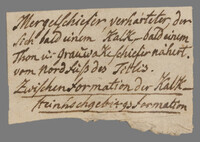 Mergelschiefer verhärteter der
sich bald einem Kalk- bald einem
Thon u: Grauwakeschiefer nähert.
vom Nord Fuß des
Zwischenformation der Kalk-
Hochgebirgs formation